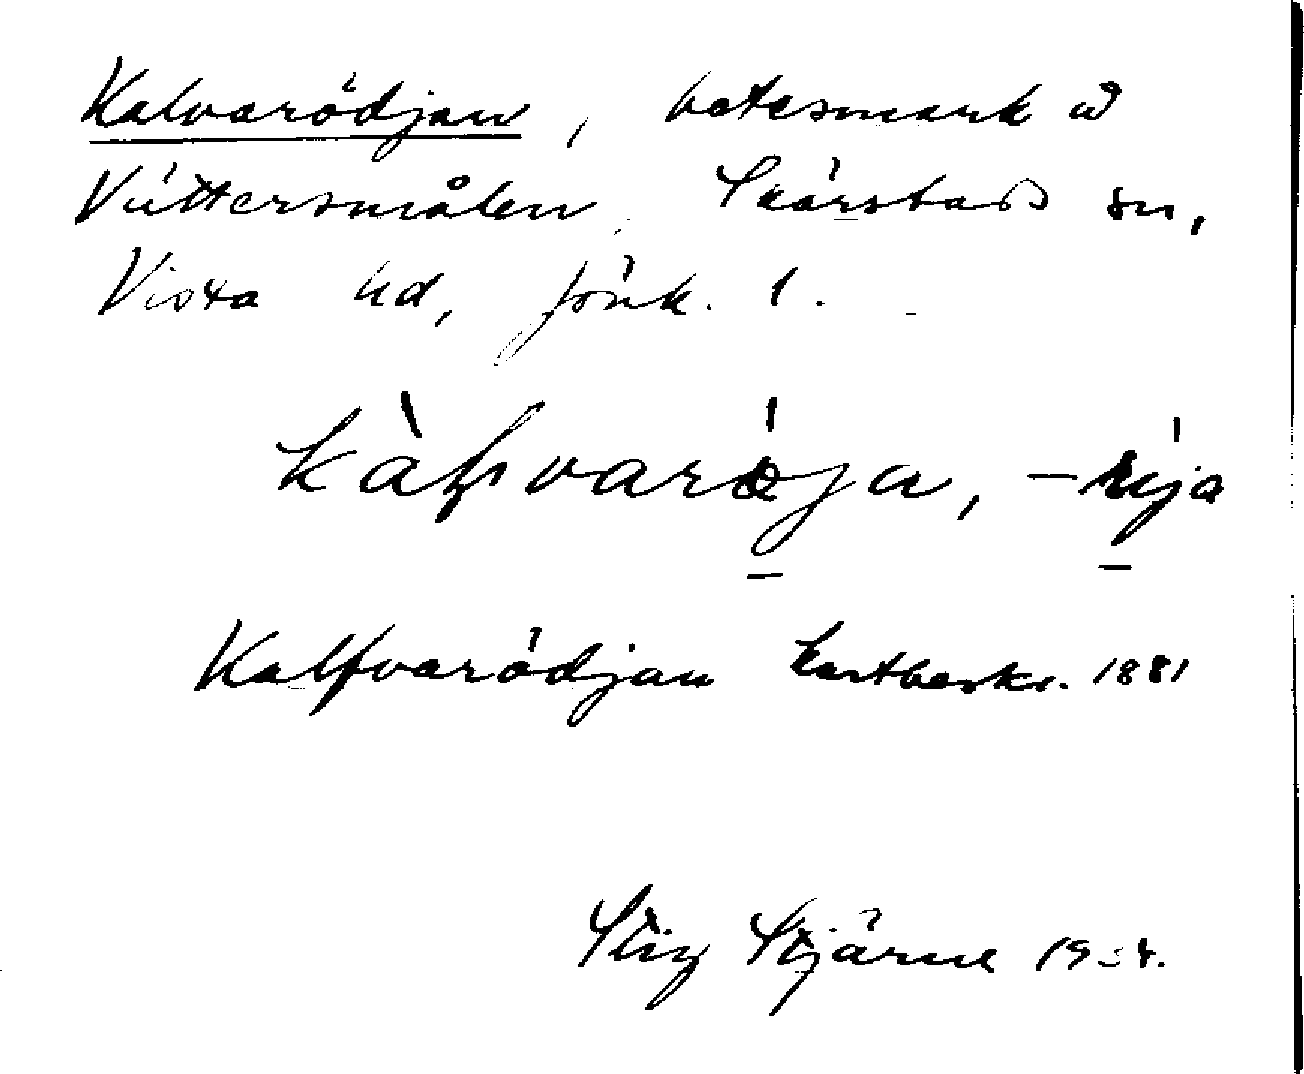 Kalvarödjan, betesmark å
Vättersmålen, Skärstads sn,
Vista hd, Jönk. l.
kàɫvarøja, -røja
Kalfvarödjan Kartbeskr. 1881
Stig Stjärne 1934.